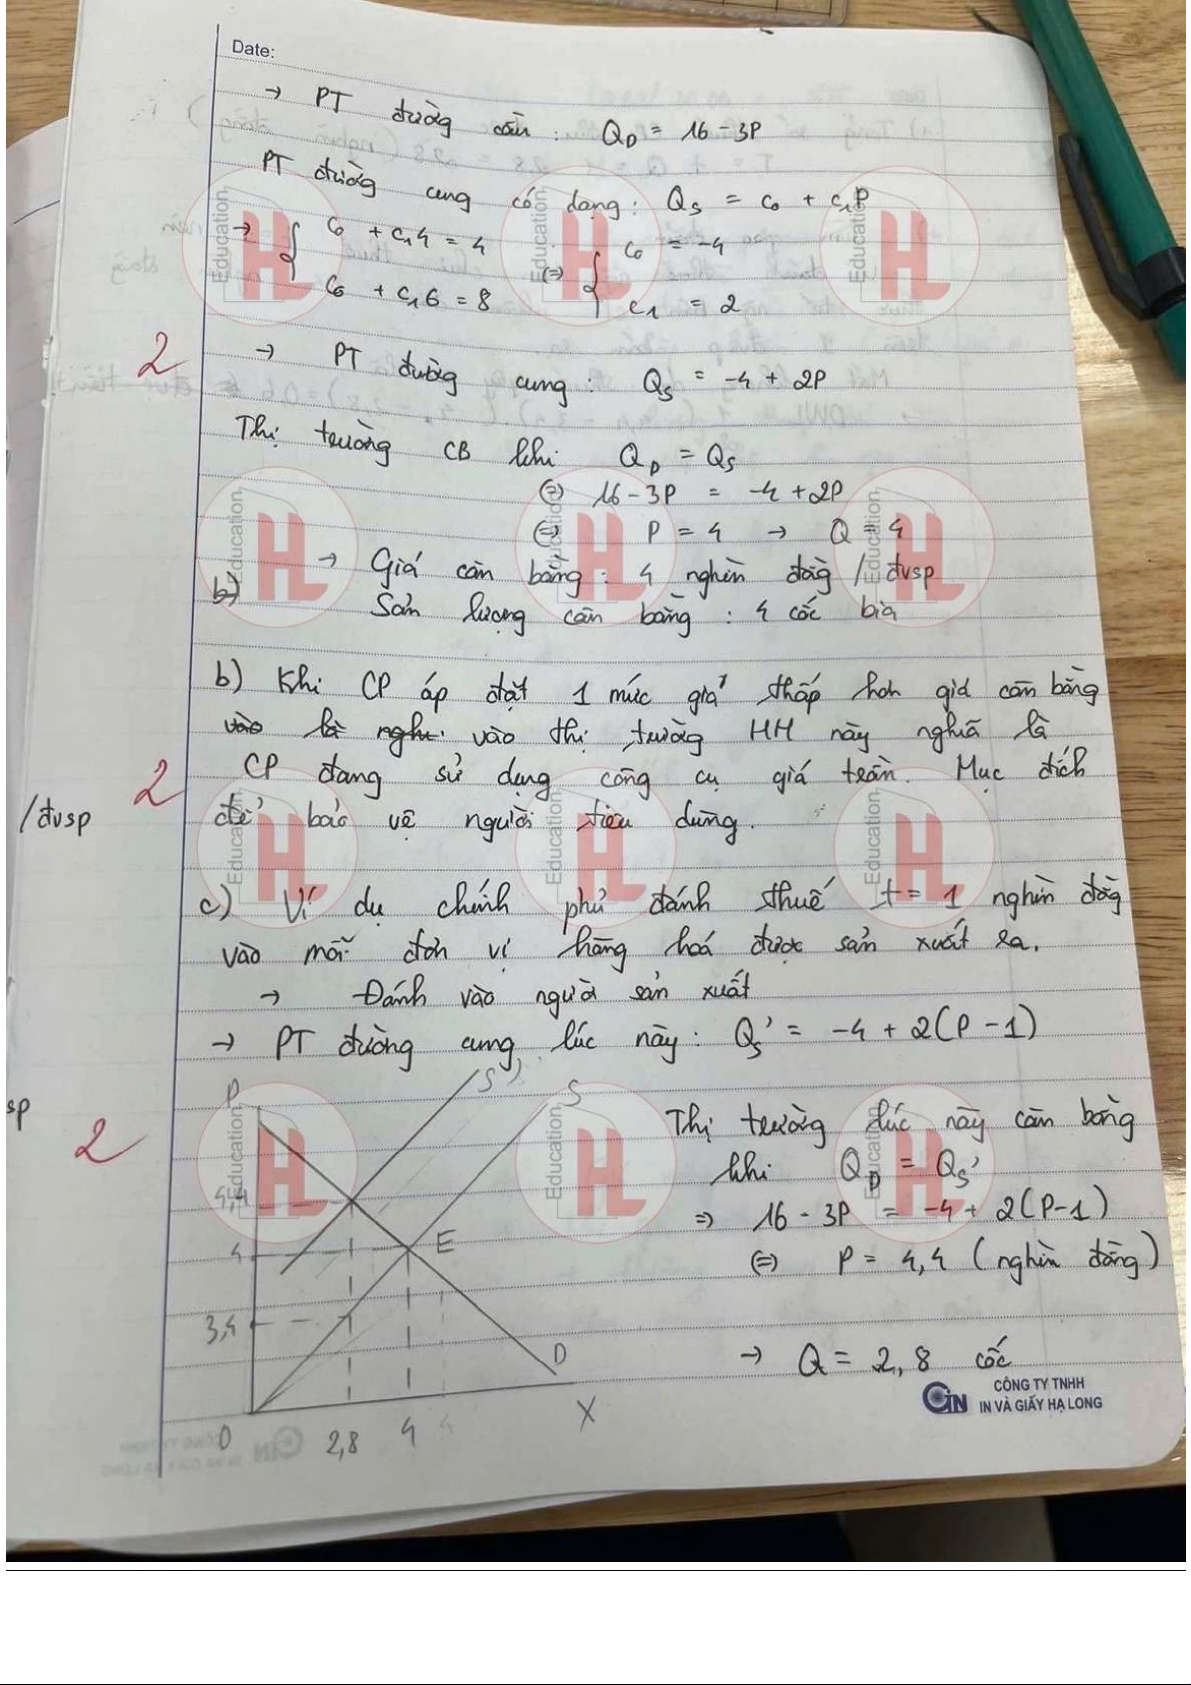 Date:
→ PT đường cầu : Q_D = 16 - 3P
PT đường cung có dạng : Q_S = c₀ + c₁P
→ { c₀ + c₁4 = 4 (=) { c₀ = -4
c₀ + c₁6 = 8 c₁ = 2
2
→ PT đường cung : Q_S = -4 + 2P
Thị trường CB khi Q_D = Q_S
(=) 16 - 3P = -4 + 2P
(=) P = 4 → Q = 4
→ Giá cân bằng : 4 nghìn đồng / đvsp
b)
Sản lượng cân bằng : 4 cốc bia
b) Khi CP áp đặt 1 mức giá thấp hơn giá cân bằng
vào là nghĩ vào thị trường HH này nghĩa là
CP đang sử dụng công cụ giá trần. Mục đích
2
/đvsp
để bảo vệ người tiêu dùng.
c) Ví dụ chính phủ đánh thuế t = 1 nghìn đồng
vào mỗi đơn vị hàng hoá được sản xuất ra.
→ Đánh vào người sản xuất
→ PT đường cung lúc này : Q_S' = -4 + 2(P - 1)
sp
2
P
S'
S
4,4
4
E
3,4
D
0
2,8
4
4
X
Thị trường lúc này cân bằng
khi Q_D = Q_S'
=) 16 - 3P = -4 + 2(P-1)
(=) P = 4,4 (nghìn đồng)
→ Q = 2,8 cốc
CIN CÔNG TY TNHH
IN VÀ GIẤY HẠ LONG
HL Education
HL Education
HL Education
HL Education
HL Education
HL Education
HL Education
HL Education
HL Education
HL Education
HL Education
HL Education